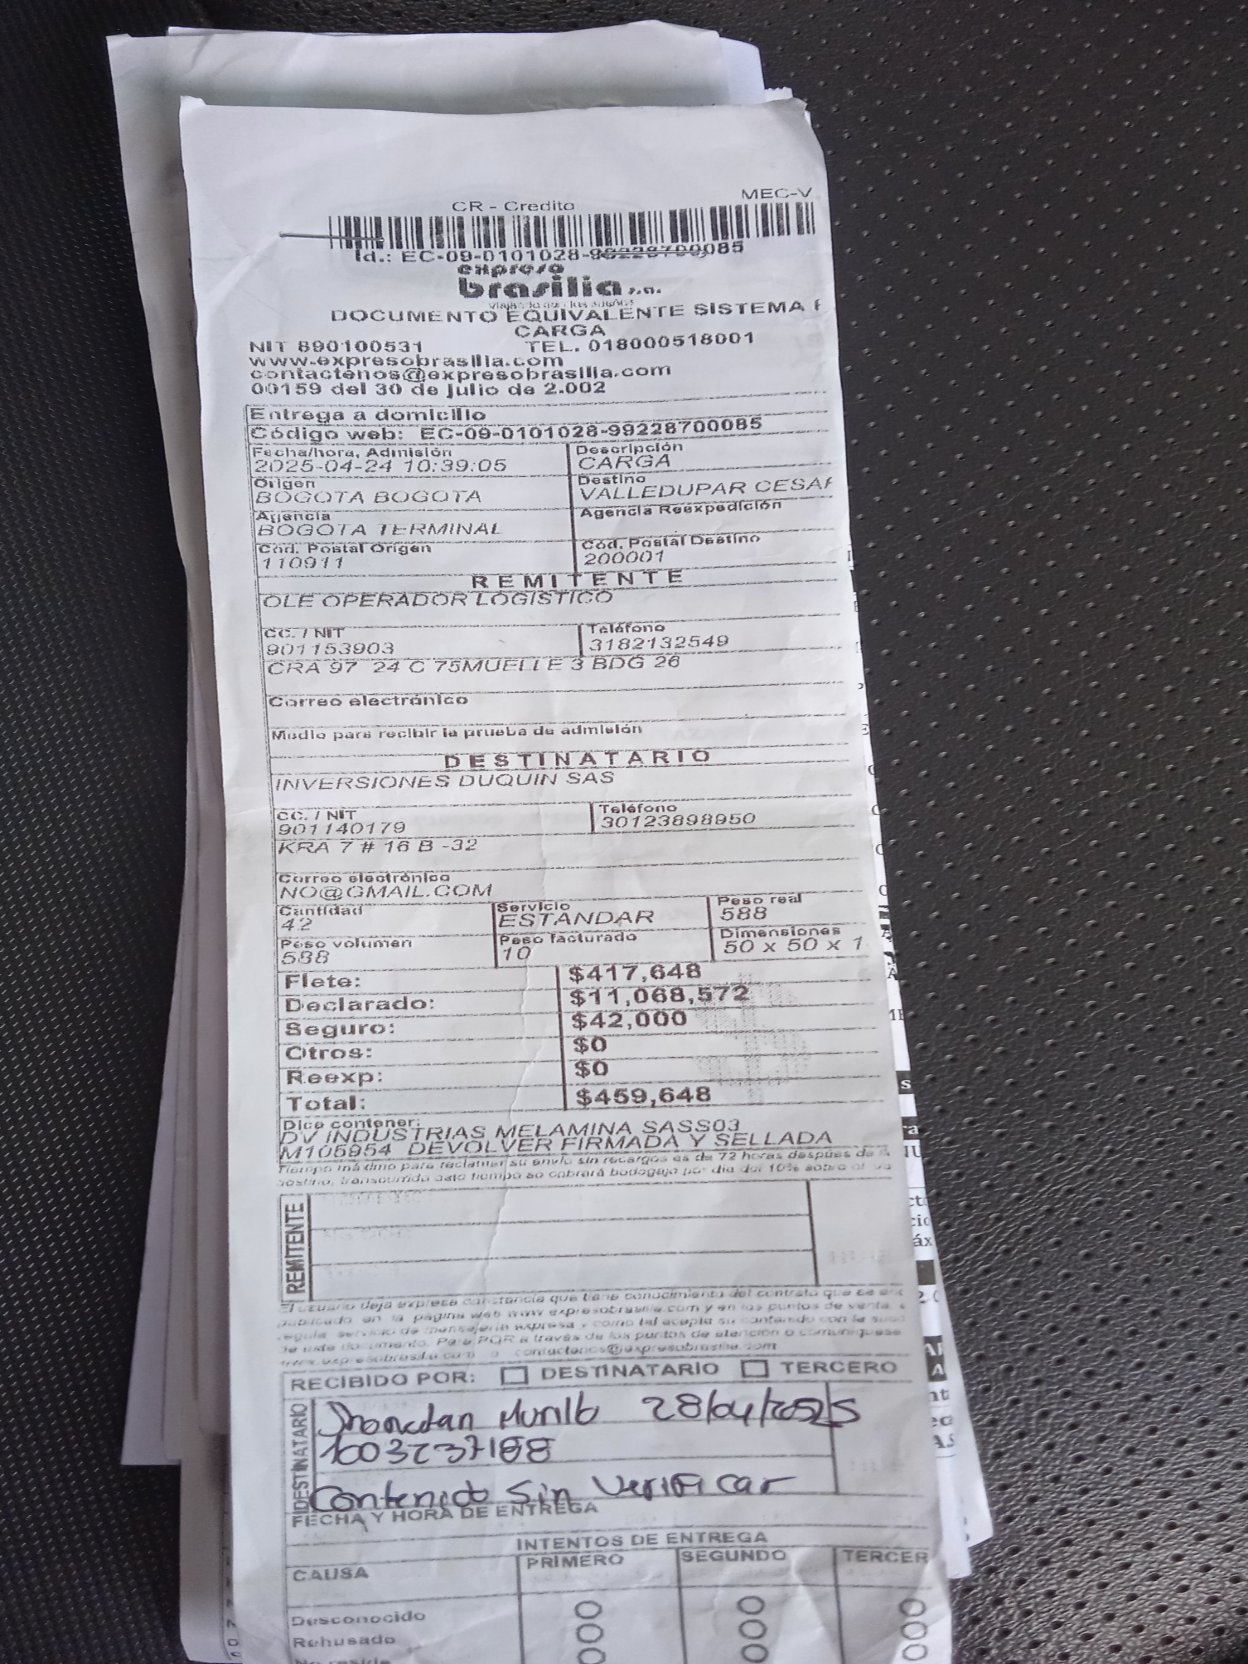 MEC-V
CR - Credito
Id.: EC-09-0101028-99228700085
expreso
brasilia s.a.
DOCUMENTO EQUIVALENTE SISTEMA
CARGA
NIT 890100531 TEL. 018000518001
www.expresobrasilia.com
contactenos@expresobrasilia.com
00159 del 30 de julio de 2.002
Entrega a domicilio
Código web: EC-09-0101028-99228700085
Fecha/hora, Admisión Descripción
2025-04-24 10:39:05 CARGA
Origen Destino
BOGOTA BOGOTA VALLEDUPAR CESAR
Agencia Agencia Reexpedición
BOGOTA TERMINAL
Cód. Postal Origen Cód. Postal Destino
110911 200001
REMITENTE
OLE OPERADOR LOGISTICO
CC. / NIT Teléfono
901153903 3182132549
CRA 97 24 C 75MUELLE 3 BDG 26
Correo electrónico
Medio para recibir la prueba de admisión
DESTINATARIO
INVERSIONES DUQUIN SAS
CC. / NIT Teléfono
901140179 30123898950
KRA 7 # 16 B -32
Correo electrónico
NO@GMAIL.COM
Cantidad Servicio Peso real
42 ESTANDAR 588
Peso volumen Peso facturado Dimensiones
588 10 50 x 50 x 1
Flete: $417,648
Declarado: $11,068,572
Seguro: $42,000
Otros: $0
Reexp: $0
Total: $459,648
Dice contener:
DV INDUSTRIAS MELAMINA SASS03
M105954 DEVOLVER FIRMADA Y SELLADA
Tiempo máximo para reclamar su envío sin recargos es de 72 horas después de
destino, transcurrido este tiempo se cobrará bodegaje por día del 10% sobre el
REMITENTE
El usuario deja expresa constancia que tiene conocimiento del contrato que se
publicado en la página web www.expresobrasilia.com y en los puntos de venta,
regula servicio de mensajería expresa y como tal acepta su contenido con la
de este documento. Para PQR a través de los puntos de atención o comuníquese
www.expresobrasilia.com o contactenos@expresobrasilia.com
RECIBIDO POR: DESTINATARIO TERCERO
DESTINATARIO
Jhonatan Murillo 28/04/2025
1003237188
Contenido Sin Verificar
FECHA Y HORA DE ENTREGA
INTENTOS DE ENTREGA
CAUSA PRIMERO SEGUNDO TERCER
Desconocido
Rehusado
No reside